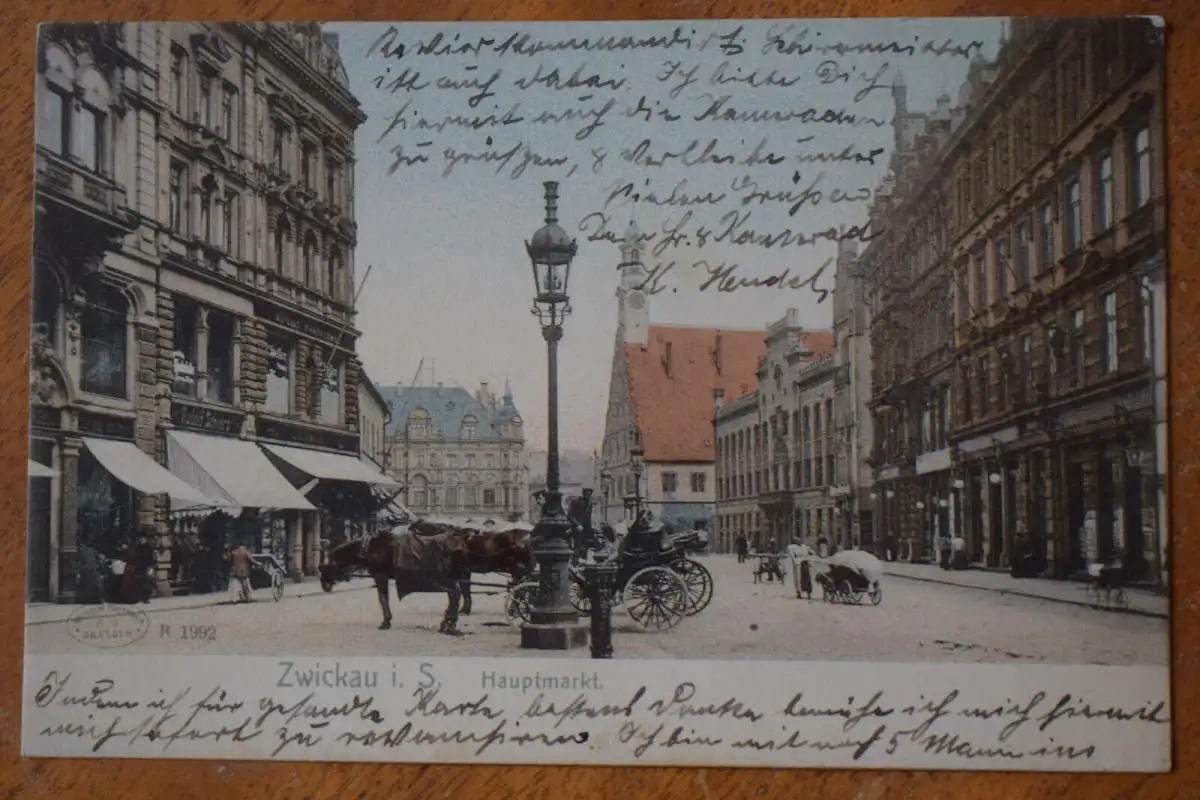 Revier kommandirt. Schirrmeister
ist auch dabei. Ich bitte Dich
hiermit auch die Kameraden
zu grüßen, & Verbleibe unter
vielen Grüßen
Dein Fr. & Kamerad
K. Hendel
DRESDEN
R 1992
Zwickau i. S. Hauptmarkt.
Indem ich für gesandte Karte, bestens Danke bemühe ich mich hiermit
mich sofort zu revansiren. Ich bin mit noch 5 Mann ins